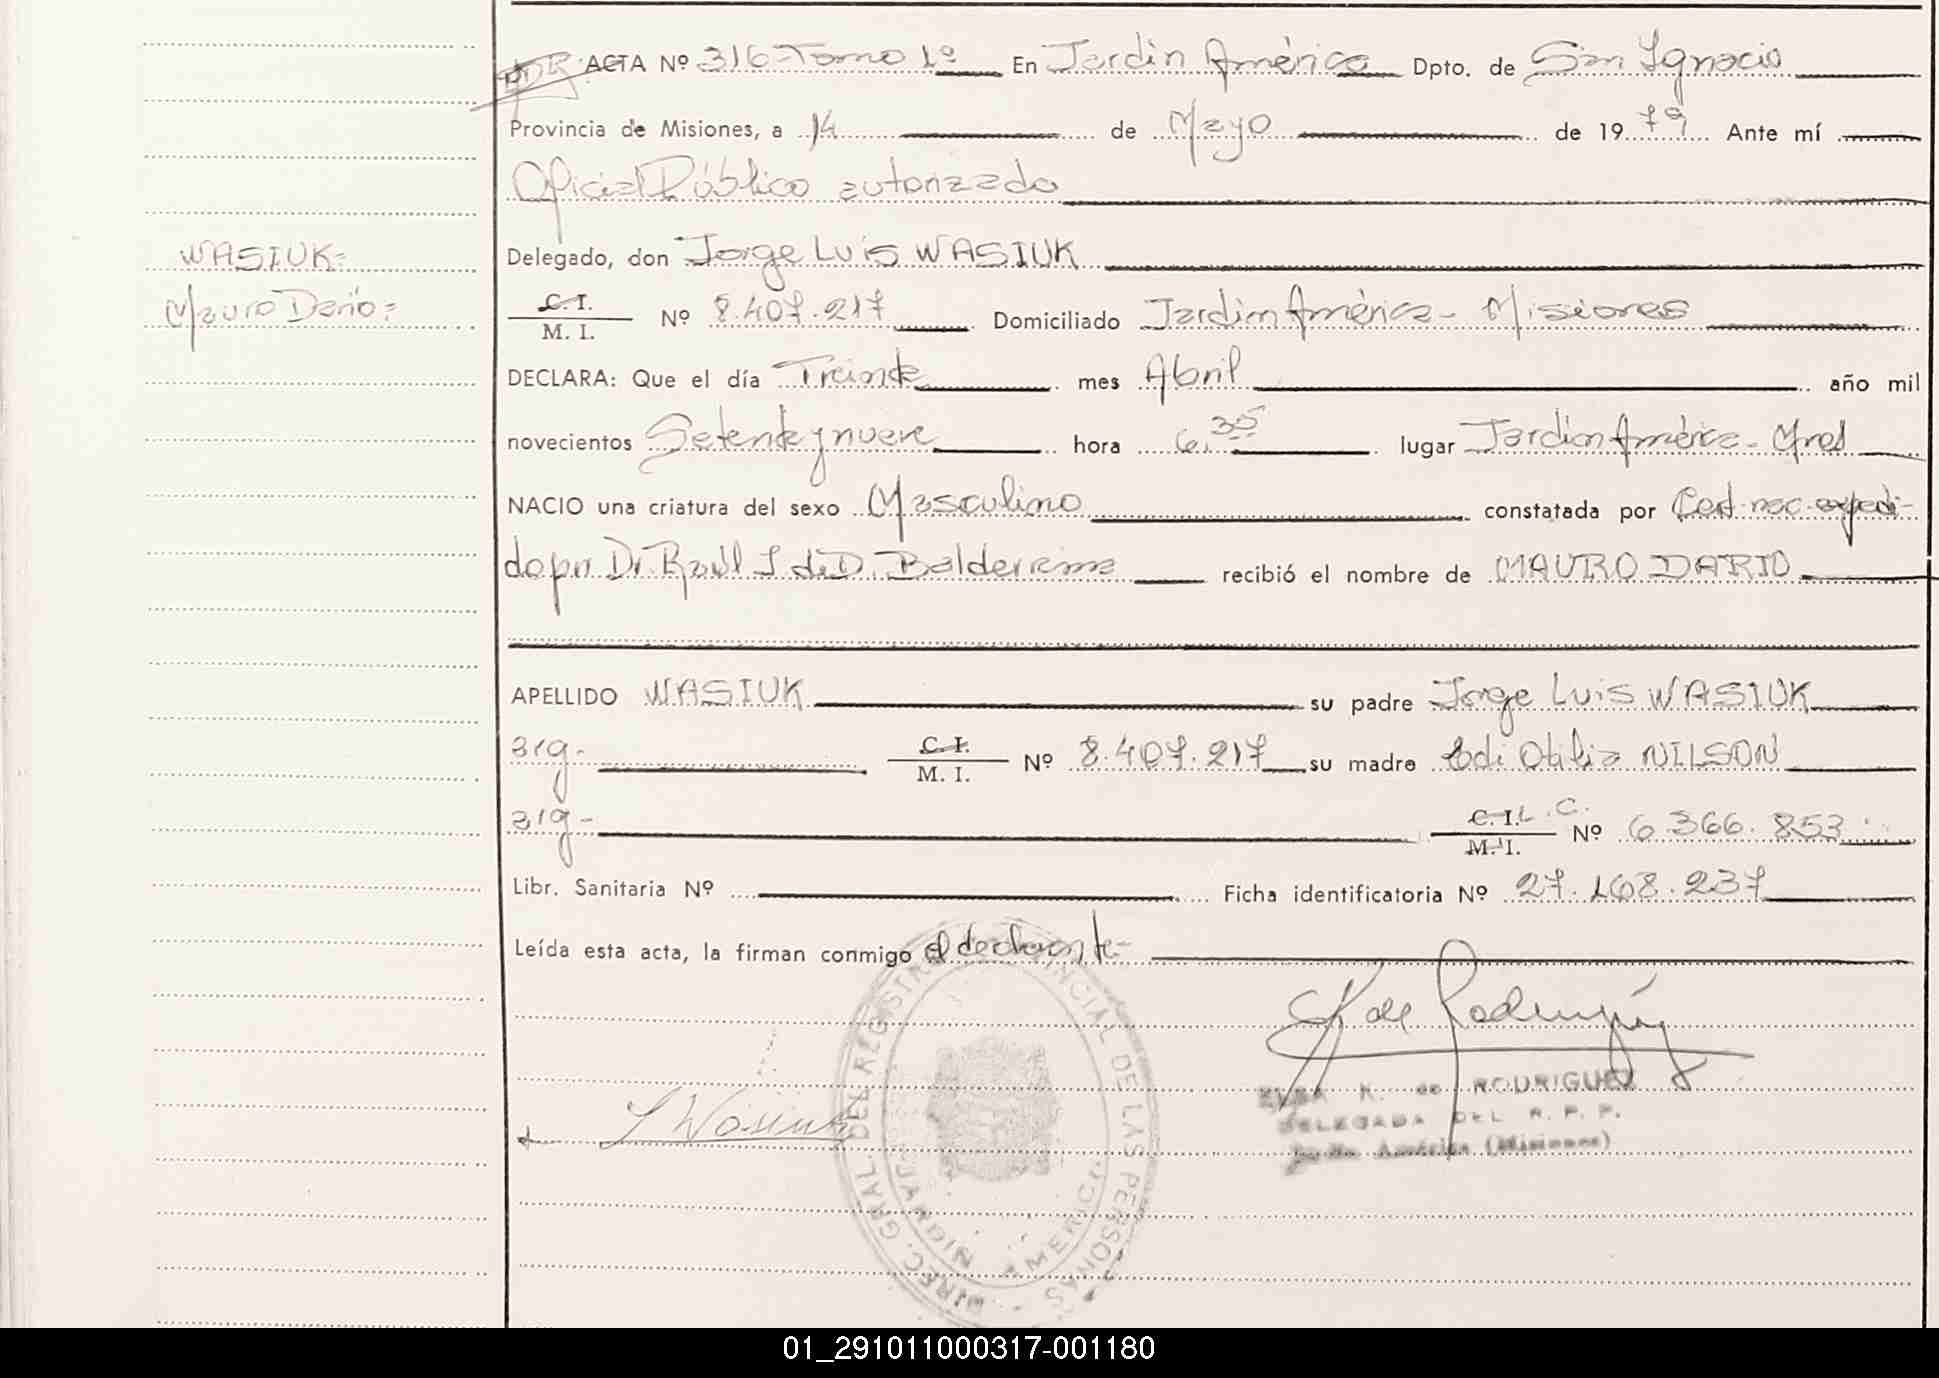 ACTA Nº 316 Tomo 1º En Jardín América Dpto. de San Ignacio
Provincia de Misiones, a 14 de Mayo de 1979 Ante mí
Oficial Público autorizado
Delegado, don Jorge Luis WASIUK
WASIUK=
C.I.
M. I. Nº 8.407.217 Domiciliado Jardín América - Misiones
Mauro Darío=
DECLARA: Que el día Treinta mes Abril año mil
novecientos Setenta y nueve hora 6,35 lugar Jardín América - Mnes
NACIO una criatura del sexo Masculino constatada por Cert. nac. expedi-
do por Dr. Raúl J. de D. Balderrama recibió el nombre de MAURO DARIO
APELLIDO WASIUK su padre Jorge Luis WASIUK
arg- C.I.
M. I. Nº 8.407.217 su madre Edi Otilia NILSON
arg- C.I. L.C.
M. I. Nº 6.366.853
Libr. Sanitaria Nº Ficha identificatoria Nº 27.168.237
Leída esta acta, la firman conmigo el declarante-
J Wasiuk
de Rodríguez
ELSA K. de RODRIGUEZ
DELEGADA DEL R. P. P.
Jardín América (Misiones)
DIREC. GRAL DEL REGISTRO PROVINCIAL DE LAS PERSONAS
JARDIN AMERICA
01_291011000317-001180